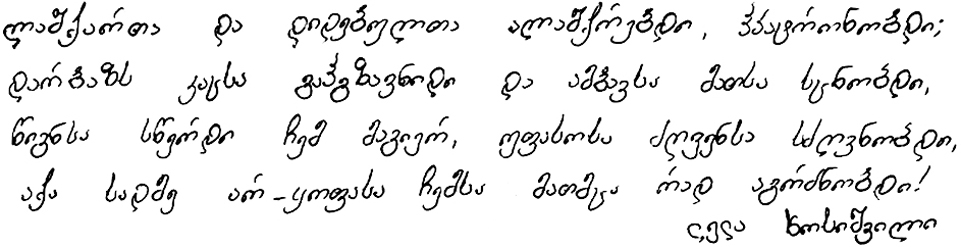 ლაშქართა და დიდებულთა ალაშქრებდი, ჰპატრონობდი;
დარბაზს კაცსა გაჰგზავნიდი და ამბავსა მათსა სცნობდი,
წიგნსა სწერდი ჩემ მაგიერ, უფასოსა ძღვენსა სძღვნობდი,
აქა სადმე არ-ყოფასა ჩემსა მათმცა რად აგრძნობდი!
ლელა ხოსიშვილი